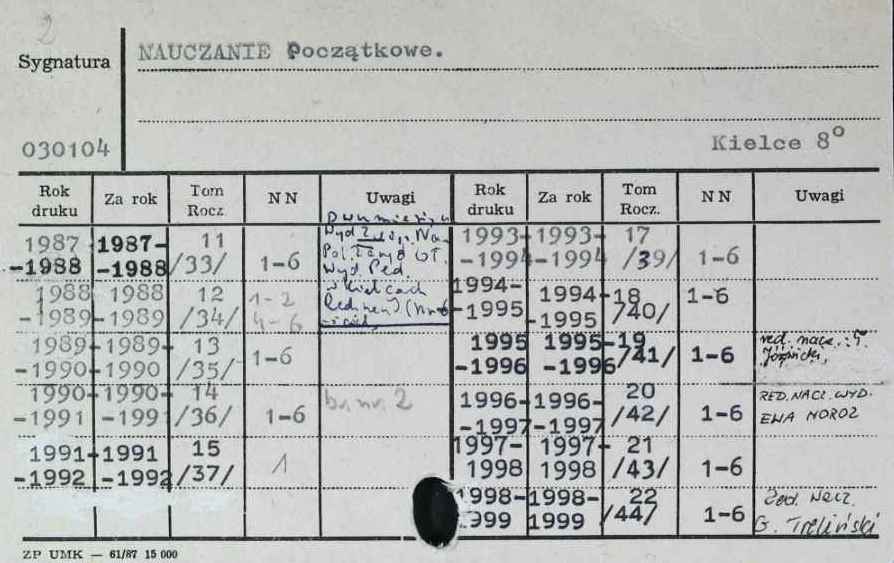 2
Sygnatura
NAUCZANIE Początkowe.
030104
Kielce 8°
Rok druku Za rok Tom Rocz. NN Uwagi
1987 -1988 1987- -1988 11 /33/ 1-6
Wyd. Ped. w Kielcach
1988 -1989 1988 -1989 12 /34/ 1-2 4-6
1989 -1990 -1989- -1990 13 /35/ 1-6
1990 -1991 -1990- -1991 14 /36/ 1-6 br. nr. 2
1991 -1992 -1991 -1992 15 /37/ 1
Rok druku Za rok Tom Rocz. NN Uwagi
1993- -1994 1993- -1994 17 /39/ 1-6
1994- -1995 1994 -1995 -18 /40/ 1-6
1995 -1996 1995 -1996 -19 /41/ 1-6 red. nacz.:
1996- -1997 1996- -1997 20 /42/ 1-6 RED. NACZ. WYD. EWA MOROZ
1997- 1998 1997- 1998 21 /43/ 1-6
1998- 1999 1998- 1999 22 /44/ 1-6 Red. Nacz. G. Treliński
ZP UMK — 61/87 15 000